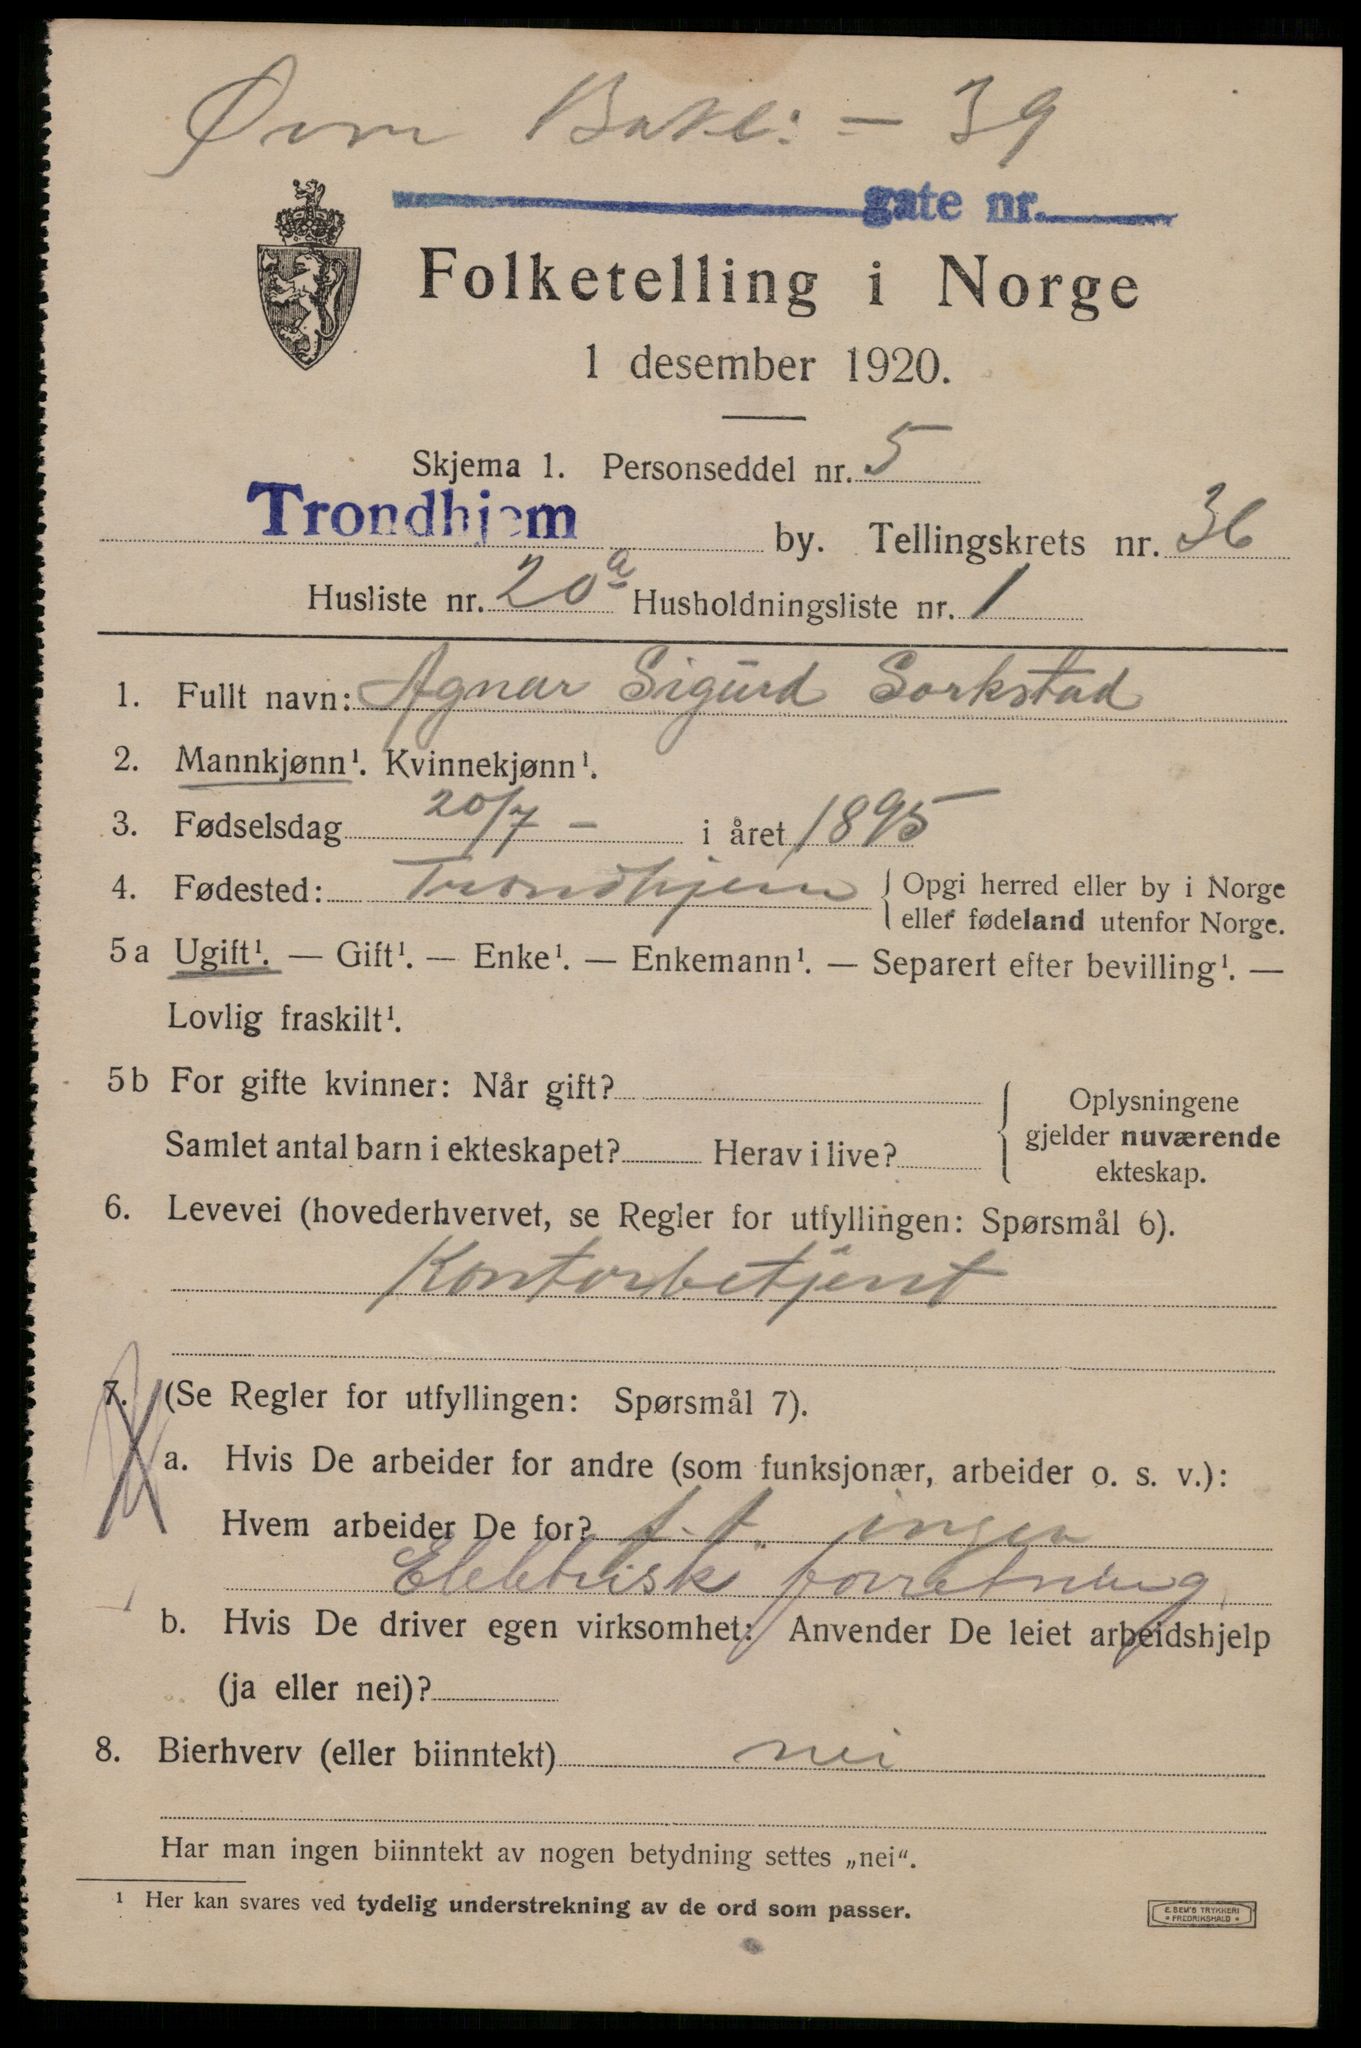 Øvre Bakl: – 39
gate nr.
Folketelling i Norge
1 desember 1920.
Skjema 1. Personseddel nr. 5
Trondhjem by. Tellingskrets nr. 36
Husliste nr. 20a Husholdningsliste nr. 1
1. Fullt navn: Agnar Sigurd Sorkstad
2. Mannkjønn¹. Kvinnekjønn¹.
3. Fødselsdag 20/7 – i året 1895
4. Fødested: Trondhjem { Opgi herred eller by i Norge
eller fødeland utenfor Norge.
5 a Ugift¹. — Gift¹. — Enke¹. — Enkemann¹. — Separert efter bevilling¹. —
Lovlig fraskilt¹.
5 b For gifte kvinner: Når gift?
Samlet antal barn i ekteskapet? Herav i live?
{ Oplysningene
gjelder nuværende
ekteskap.
6. Levevei (hovederhvervet, se Regler for utfyllingen: Spørsmål 6).
Kontorbetjent
7. (Se Regler for utfyllingen: Spørsmål 7).
a. Hvis De arbeider for andre (som funksjonær, arbeider o. s. v.):
Hvem arbeider De for? f. t. ingen
Elektrisk forretning
b. Hvis De driver egen virksomhet: Anvender De leiet arbeidshjelp
(ja eller nei)?
8. Bierhverv (eller biinntekt) nei
Har man ingen biinntekt av nogen betydning settes „nei“.
¹ Her kan svares ved tydelig understrekning av de ord som passer.
E. SEM'S TRYKKERI
• FREDRIKSHALD •